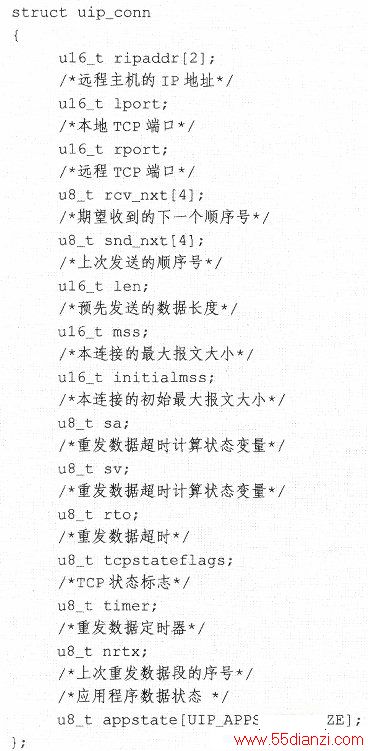 struct uip_conn
{
u16_t ripaddr[2];
/*远程主机的 IP 地址*/
u16_t lport;
/*本地 TCP 端口*/
u16_t rport;
/*远程 TCP 端口*/
u8_t rcv_nxt[4];
/*期望收到的下一个顺序号*/
u8_t snd_nxt[4];
/*上次发送的顺序号*/
u16_t len;
/*预先发送的数据长度*/
u16_t mss;
/*本连接的最大报文大小*/
u16_t initialmss;
/*本连接的初始最大报文大小*/
u8_t sa;
/*重发数据超时计算状态变量*/
u8_t sv;
/*重发数据超时计算状态变量*/
u8_t rto;
/*重发数据超时*/
u8_t tcpstateflags;
/*TCP 状态标志*/
u8_t timer;
/*重发数据定时器*/
u8_t nrtx;
/*上次重发数据段的序号*/
/*应用程序数据状态 */
u8_t appstate[UIP_APPS ZE];
};
www.55dianzi.com